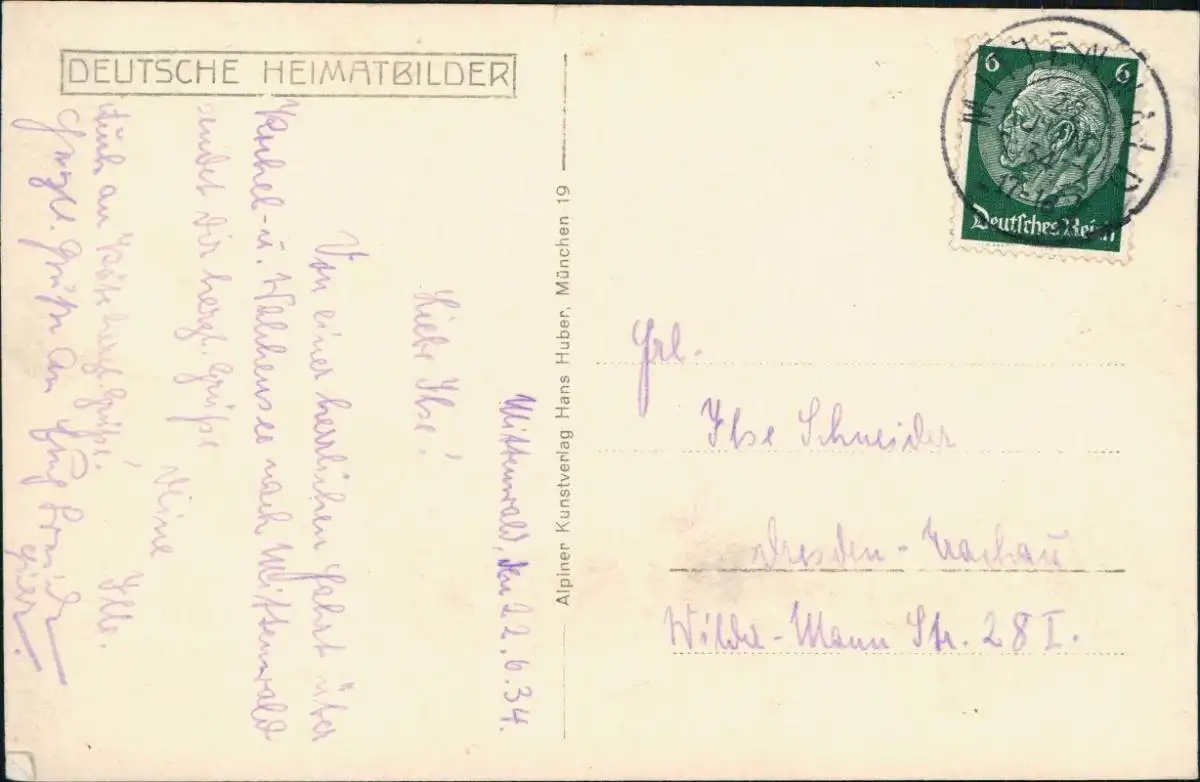 DEUTSCHE HEIMATBILDER
Mittenwald, den 22.6.34.
Liebe Ilse!
Von einer herrlichen Fahrt über
Kochel- u. Walchensee nach Mittenwald
sendet Dir herzl. Grüße
Deine
Ille.
Auch an Käte herzl. Grüße!
Grüße an
Alpiner Kunstverlag Hans Huber, München 19
6 6
Deutsches Reich
MITTENWALD
34
Frl.
Ilse Schneider
Dresden - Trachau
Wilder-Mann Str. 28 I.